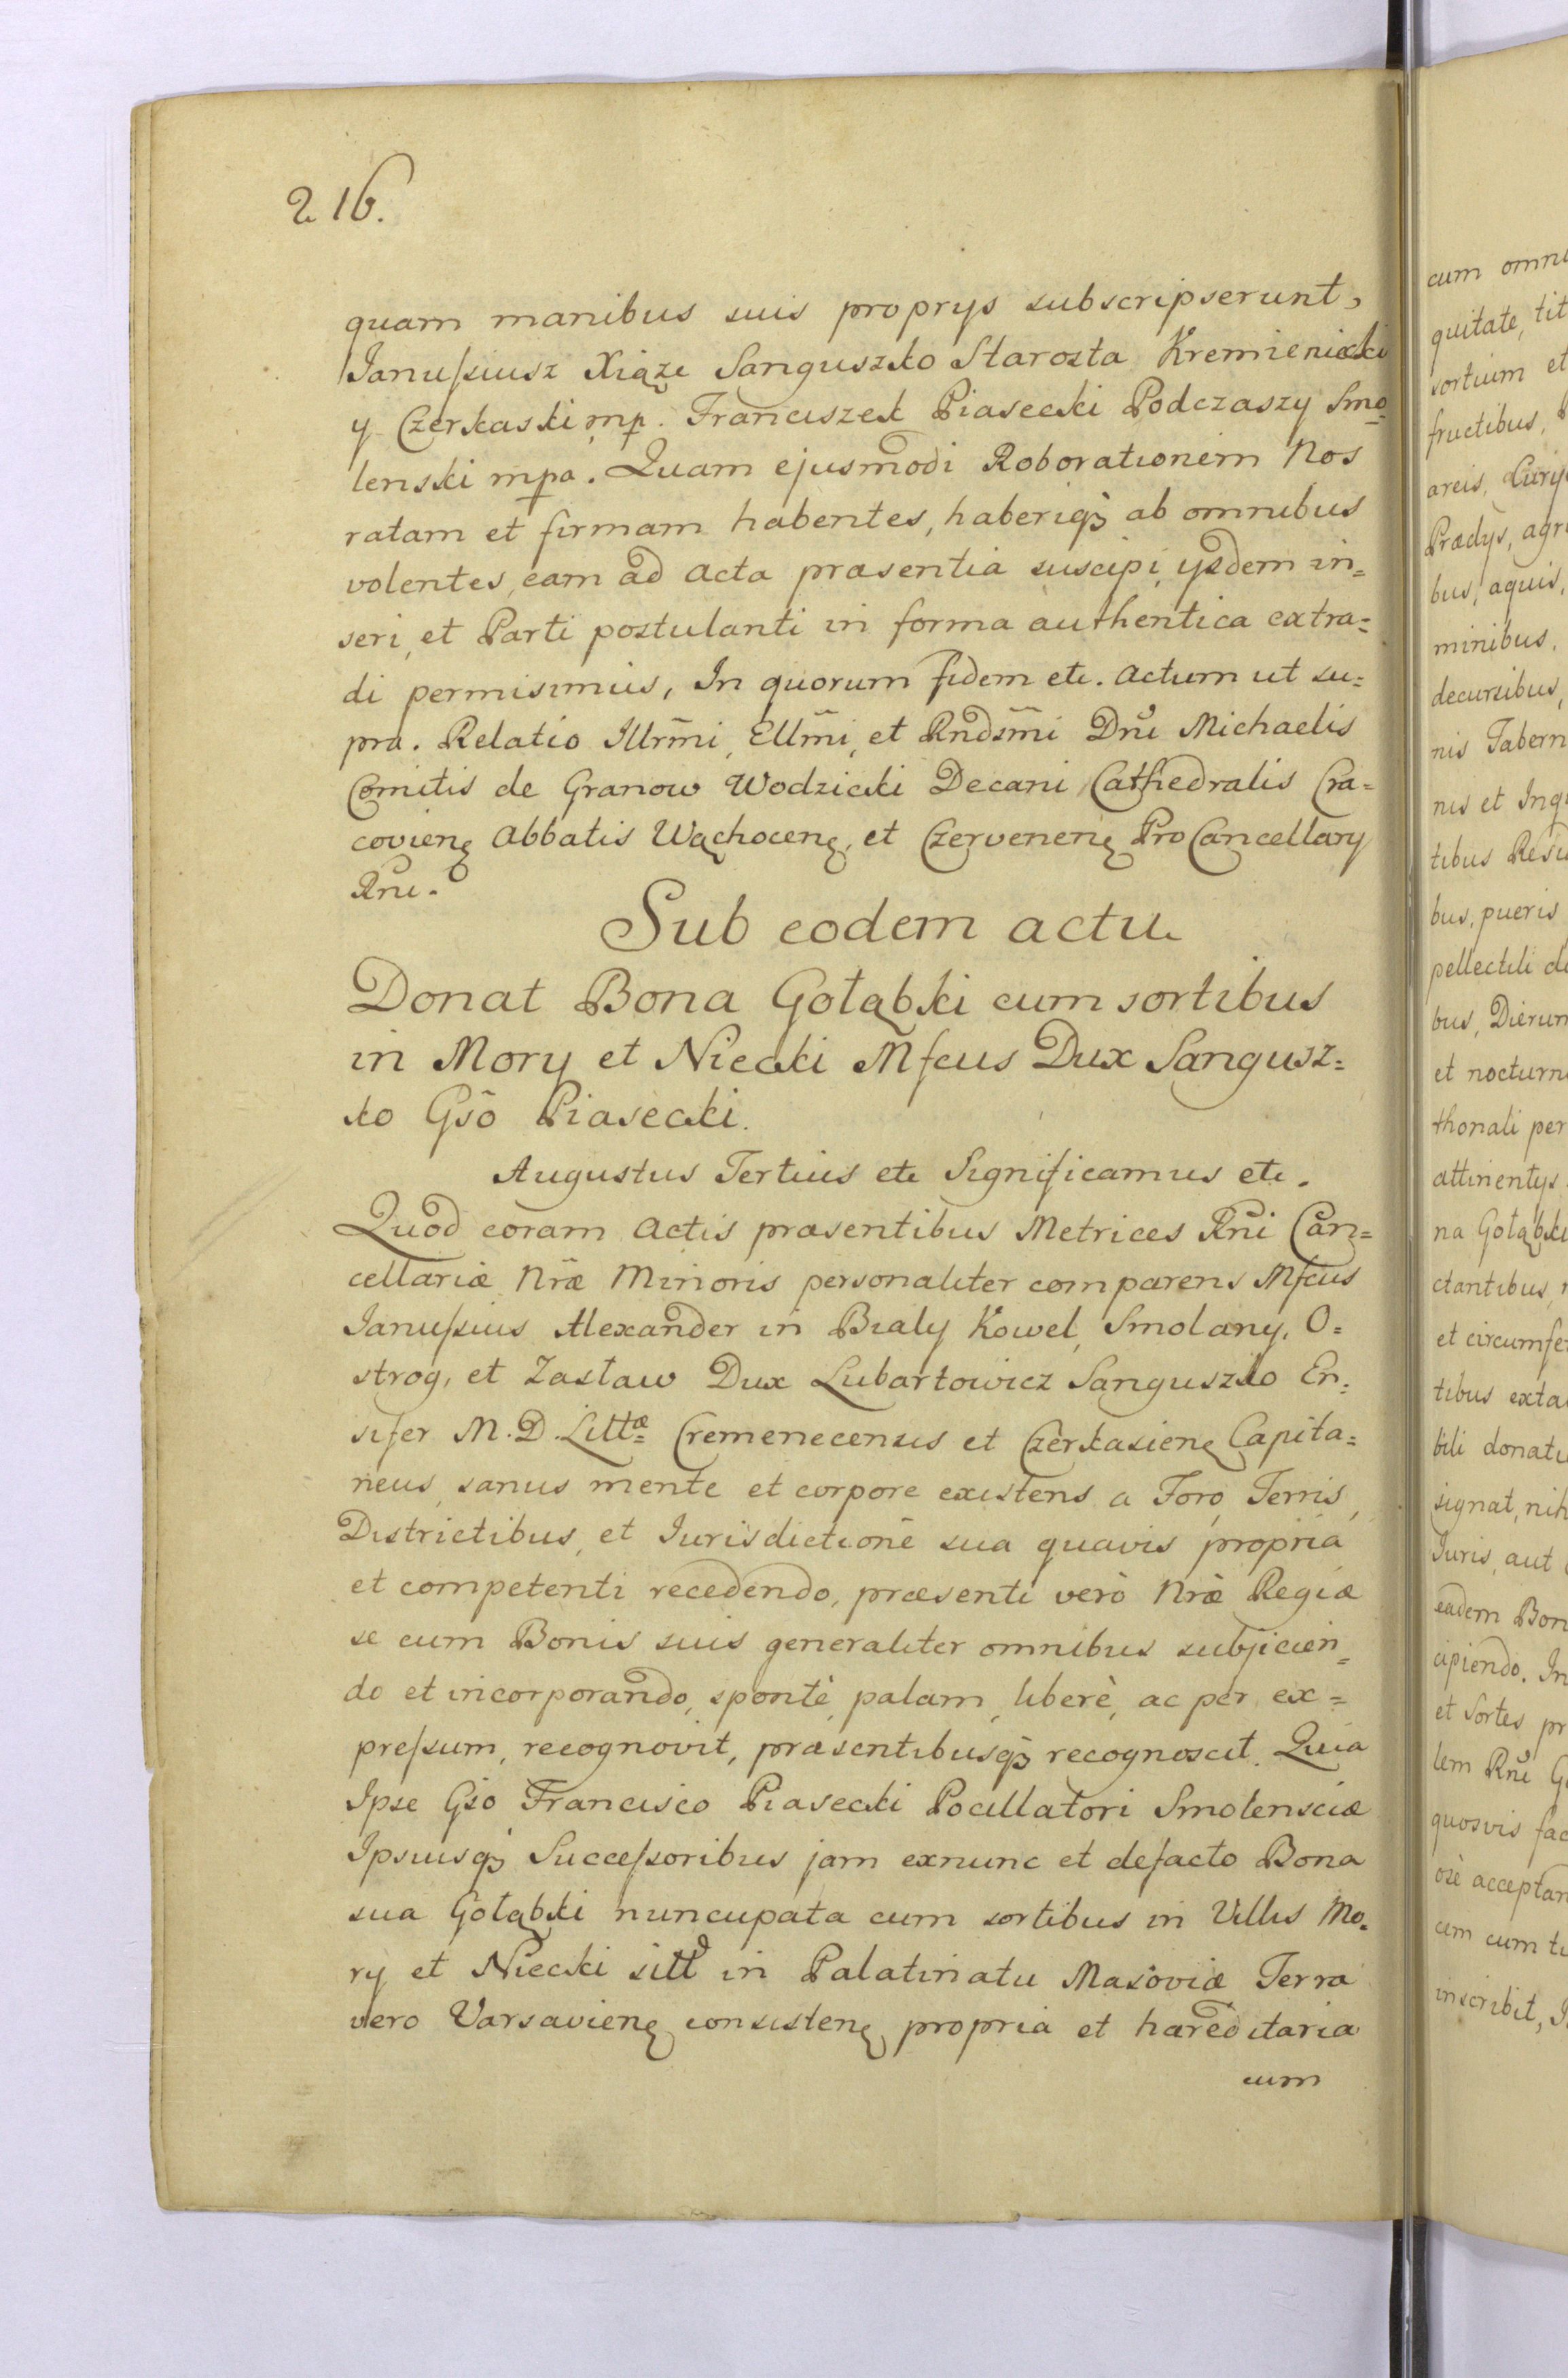 216.
quam manibus suis proprys subscripserunt,
Janussiusz Xiąze Sanguszko Starosta Kremieniecki
y Czerkaski mp. Franciszek Piasecki Podczaszy Smo=
lenski mpa. Quam ejusmodi Roborationem Nos
ratam et firmam habentes, haberiq₃ ab omnibus
volentes, eam ad acta præsentia suscipi, ysdem in=
seri, et Parti postulanti in forma authentica extra=
di permisimus, In quorum fidem etc. Actum ut su=
pra. Relatio Illr̃mi, Ellm̃i, et Rñdsm̃i Dñi Michaelis
Comitis de Granow Wodzicki Decani Cathedralis Cra=
covien. Abbatis Wąchocen. et Czervenen. ProCancellary
Rñi.
Sub eodem actu
Donat Bona Gołąbki cum sortibus
in Mory et Niecki Mfcus Dux Sangusz=
ko Gs̃o Piasecki.
Augustus Tertius etc Significamus etc.
Quod coram Actis præsentibus Metrices Rñi Can=
cellariæ Nr̃æ Minoris personaliter comparens Mfcus
Janussius Alexander in Bialy Kowel, Smolany, O=
strog, et Zasław Dux Lubartowicz Sanguszko En=
sifer M. D. Littæ Cremenecensis et Czerkasien. Capita=
neus, sanus mente et corpore existens, a Foro, Terris,
Districtibus, et Jurisdictione sua quavis propria
et competenti recedendo, præsenti verò Nr̃æ Regiæ
se cum Bonis suis generaliter omnibus subjicien=
do et incorporando, spontè, palam, liberè, ac per ex=
pressum, recognovit, præsentibusq₃ recognoscit. Quia
Ipse Gs̃o Francisco Piasecki Pocillatori Smolensciæ
Ipsiusq₃ Successoribus jam exnunc et defacto Bona
sua Gołąbki nuncupata cum sortibus in Villis Mo=
ry et Niecki sitt in Palatinatu Masoviæ Terra
vero Varsavien. consisten. propria et hæreditaria
cum
cum omni
quitate, tit
sortium et
fructibus,
areis, Curij
Prædys, agr
bus, aquis,
minibus,
decursibus,
nis Tabern
nis et Inqu
tibus Resi
bus, pueris
pellectili do
bus, Dierum
et nocturn
thonali per
attinentys
na Gołąbki
ctantibus,
et circumfe
tibus exta
bili donati
signat, nih
Juris, aut
eadem Bon
cipiendo. In
et Sortes pr
lem Rñi G
quosvis fac
acceptan
cem cum ti
inscribit,